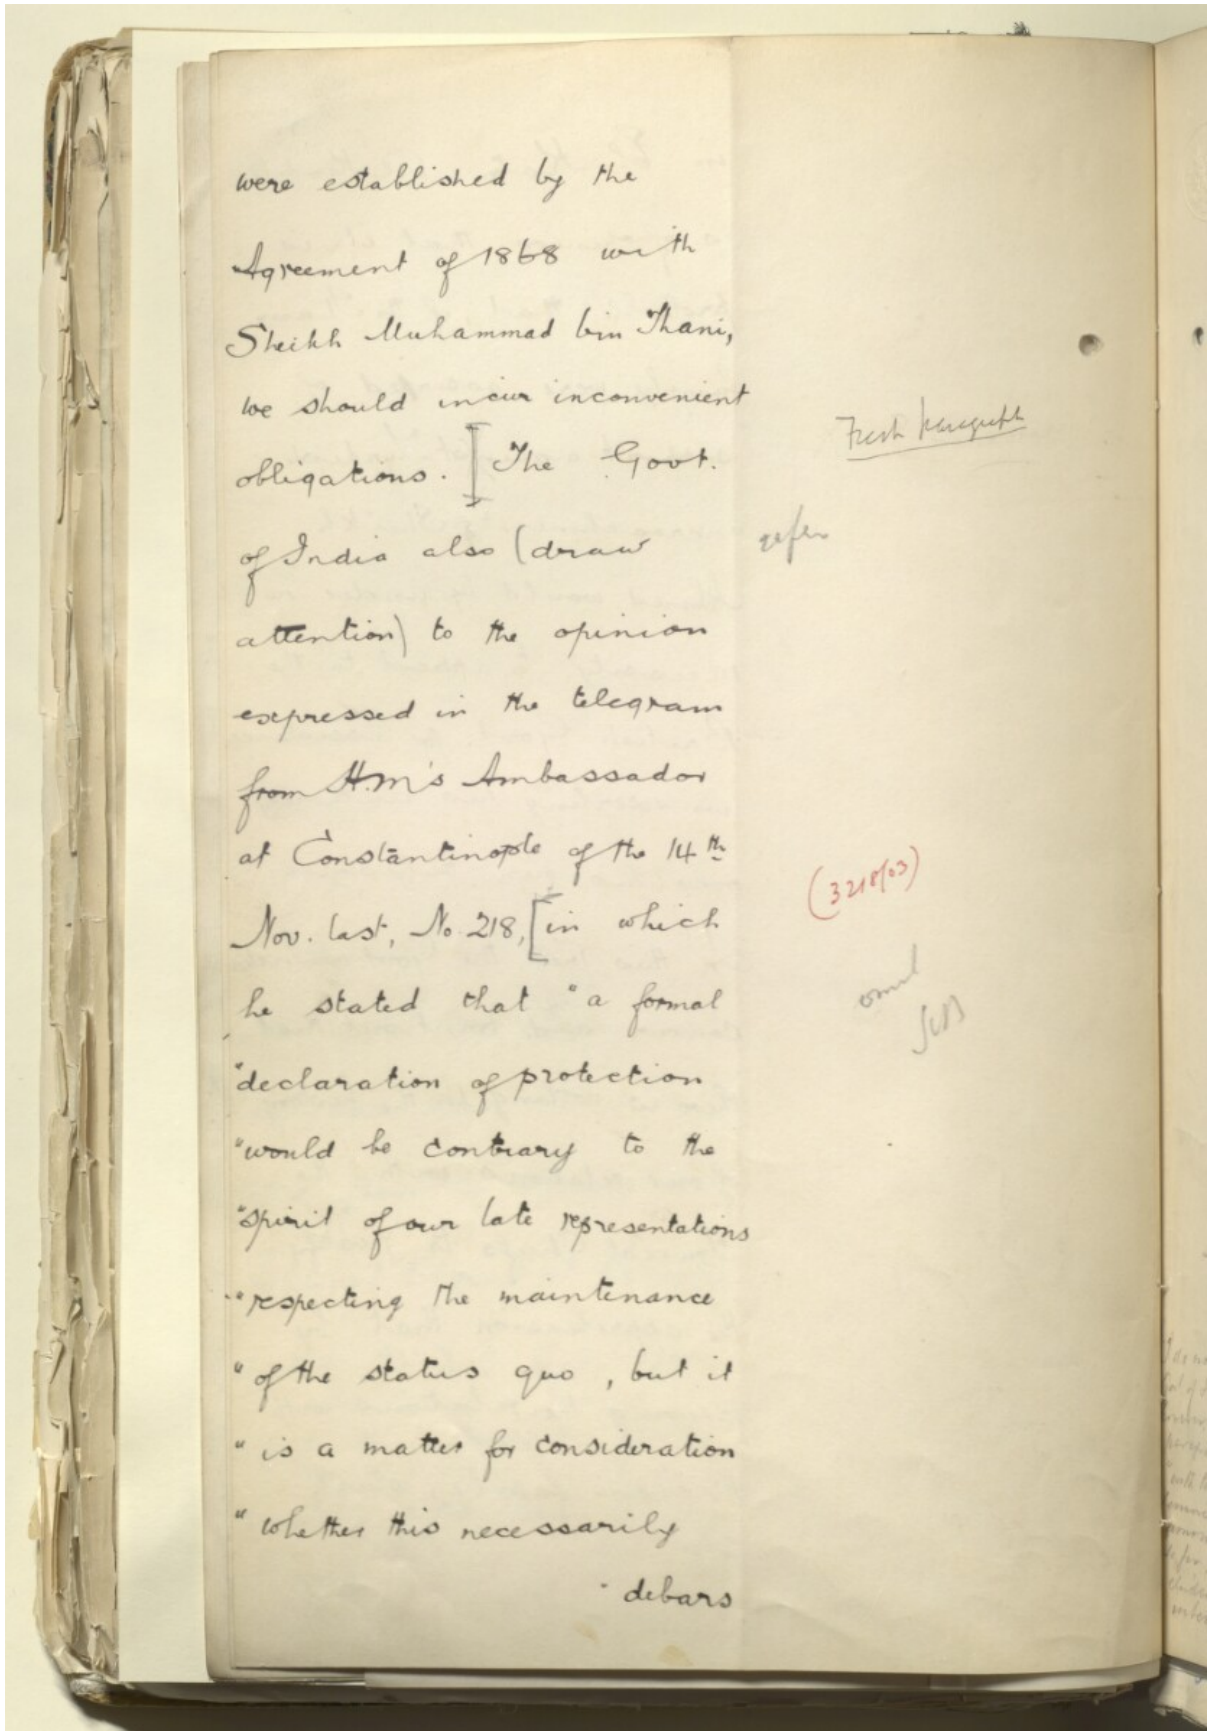 were established by the
Agreement of 1868 with
Sheikh Muhammad bin Thani,
we should incur inconvenient
obligations. [The Govt.
Fresh paragraph
of India also (draw
refer
attention) to the opinion
expressed in the telegram
from H.M's Ambassador
at Constantinople of the 14th
(3218/03)
Nov. last, No. 218, [in which
he stated that "a formal
omit
"declaration of protection
"would be contrary to the
"spirit of our late representations
"respecting the maintenance
"of the status quo, but it
"is a matter for consideration
"whether this necessarily
"debars